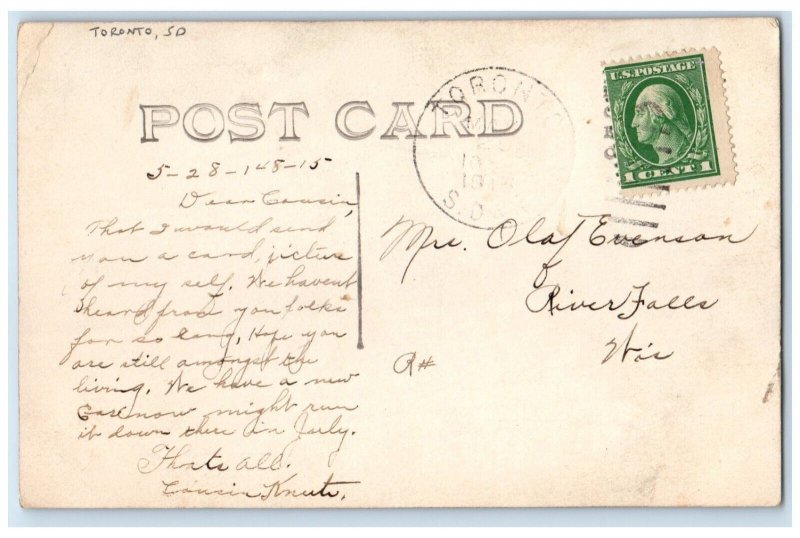 TORONTO, SD
POST CARD
TORONTO
S.D.
U.S. POSTAGE
1 CENT 1
5-28-148-15
Dear Cousin,
That I would send
you a card, picture
of my self. We havent
heard from you folks
for so long, Hope you
are still amongst the
living. We have a new
Case now might run
it down there in July.
Thats all.
Cousin Knute.
Mrs. Olaf Evenson
River Falls
Wis
R#